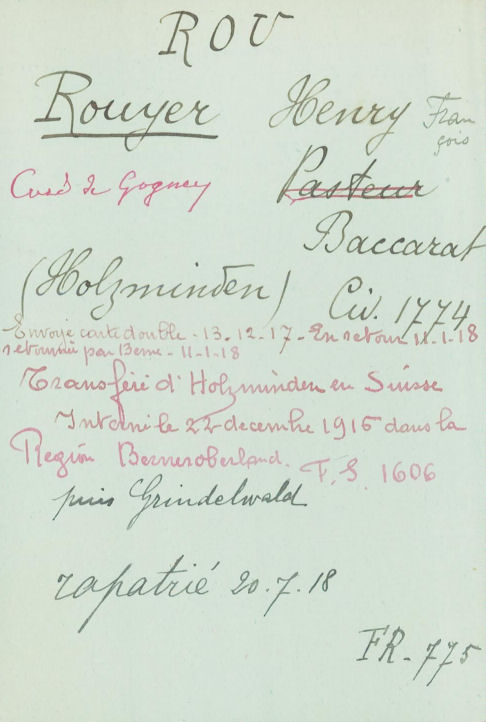 ROU
Rouyer Henry Fran
çois
Curé de Gogney Pasteur
Baccarat
(Holzminden) Civ. 1774
Envoyé carte double - 13.12.17 - En retour 11-1-18
retourné par Berne - 11-1-18
Transféré d'Holzminden en Suisse
Interné le 22 decembre 1916 dans la
Région Berneroberland. F.S. 1606
puis Grindelwald
rapatrié 20.7.18
FR-775